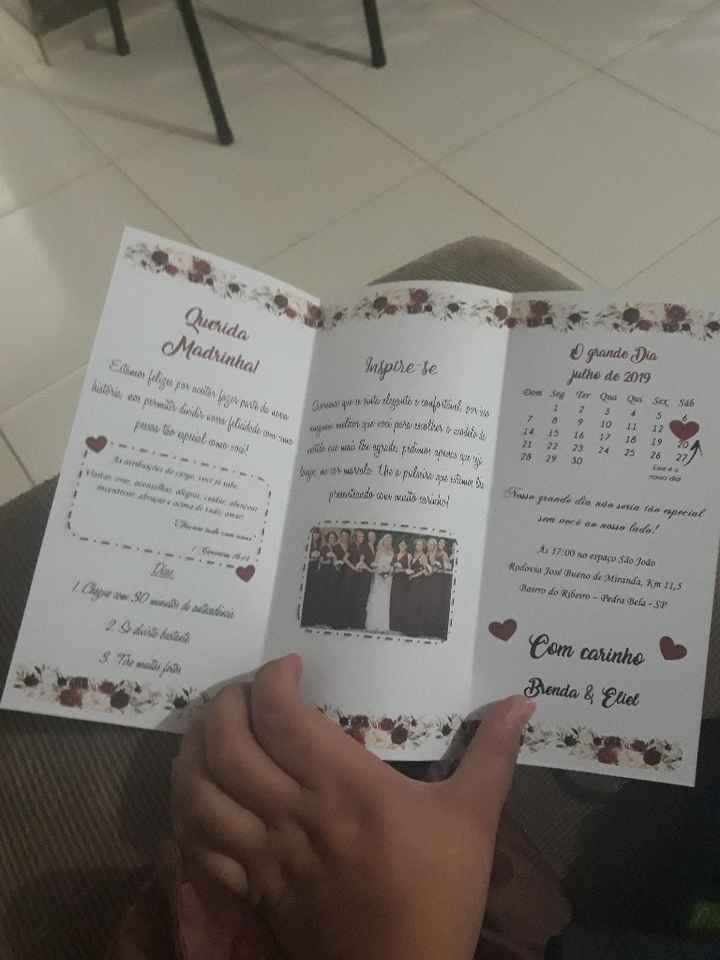 Querida
Madrinha!
Estamos felizes por aceitar fazer parte da nossa
história, nos permitir dividir nossa felicidade com uma
pessoa tão especial como você!
As atribuições do cargo, você já sabe.
Vibrar, orar, aconselhar, alegrar, cuidar, abraçar,
abraçar e acima de tudo, amar!
1 Coríntios 16:14
Dicas
1. Chegue com 30 minutos de antecedência
2. Se divirta bastante
3. Tire muitas fotos
Inspire-se
Queremos que se sinta elegante e confortável, por isso
ninguém melhor que você para escolher o modelo do
vestido que mais lhe agrade, pedimos apenas que seja
longo, na cor marsala. Use a pulseira que estamos lhe
presenteando com muito carinho!
O grande Dia
julho de 2019
Dom Seg Ter Qua Qui Sex Sáb
1 2 3 4 5 6
7 8 9 10 11 12
14 15 16 17 18 19 20
21 22 23 24 25 26 27
28 29 30
Esse é o
nosso dia!
Nosso grande dia não seria tão especial
sem você ao nosso lado!
Às 17:00 no espaço São João
Rodovia José Bueno de Miranda, Km 11,5
Bairro do Ribeiro – Pedra Bela - SP
Com carinho
Brenda & Eliel